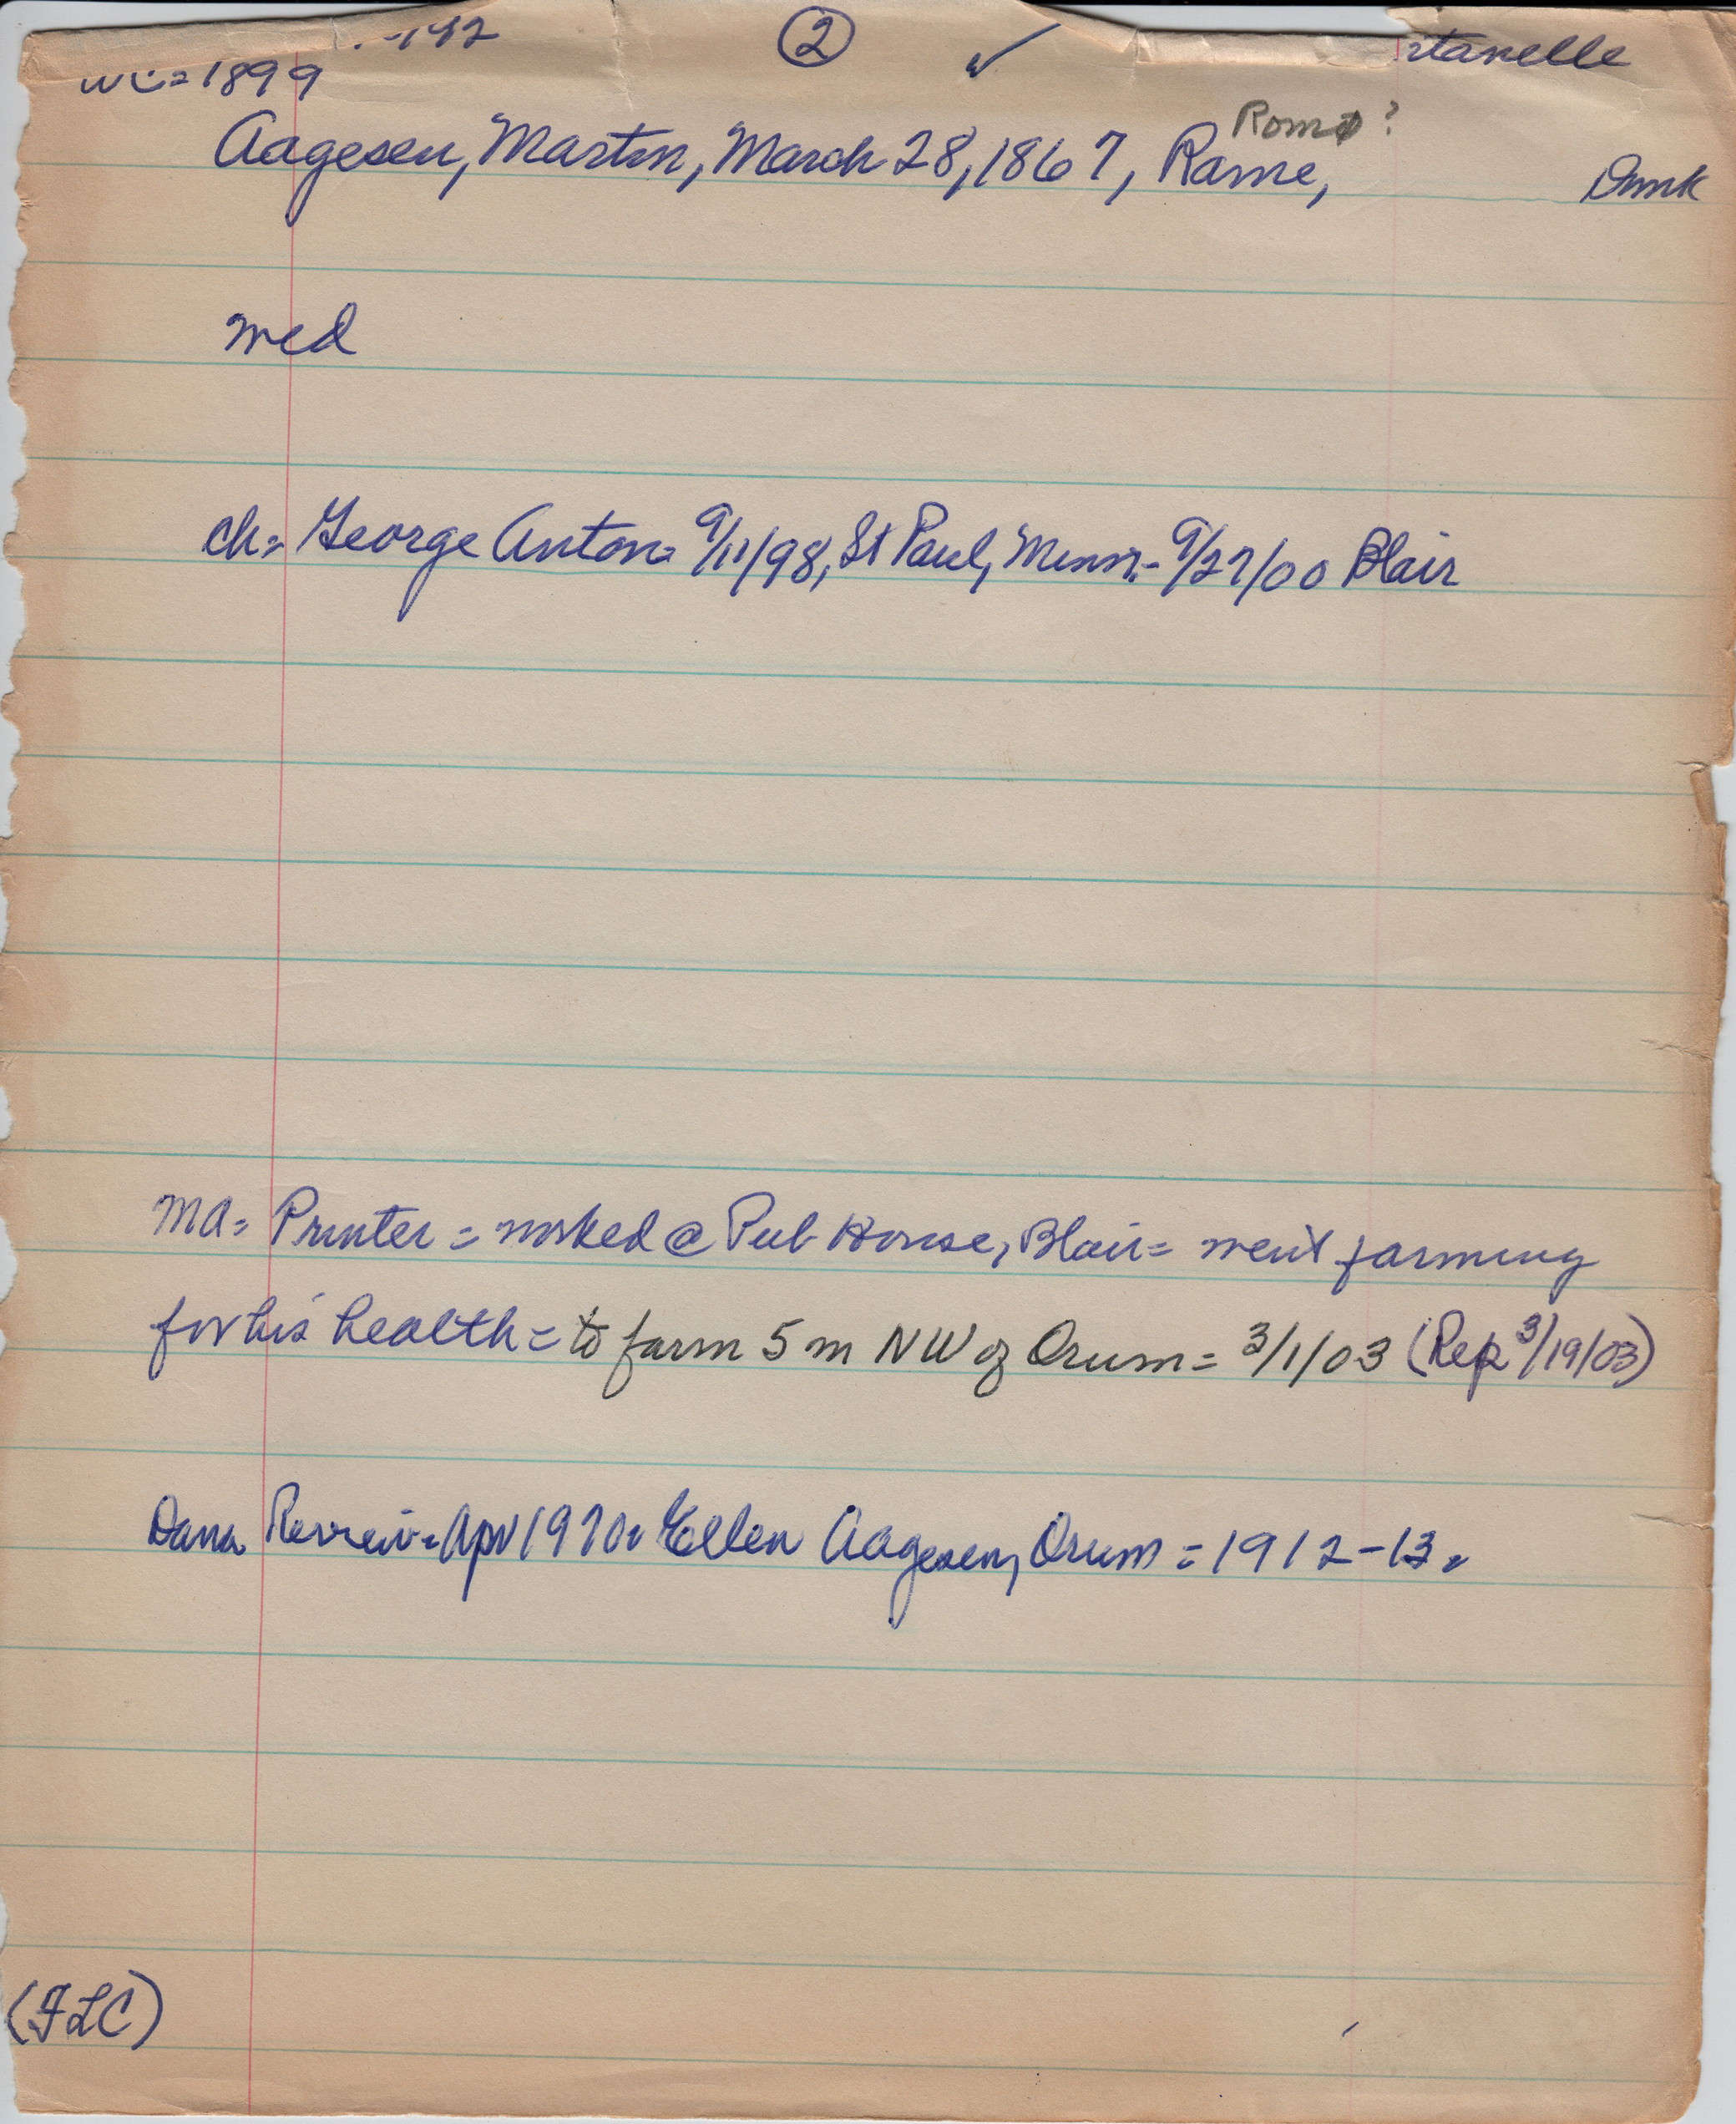 -142 ② ✓ rtanelle
WC=1899
Romø?
Aagesen, Martin, March 28, 1867, Rame, Dmk
med
ch= George Anton= 9/11/98, St Paul, Minn.- 9/27/00 Blair
MA= Printer = worked @ Pub House, Blair= went farming
for his health = to farm 5 m NW of Orum = 3/1/03 (Rep 3/19/03)
Dana Review= Apr 1970= Ellen Aagesen, Orum = 1912-13.
(FLC)